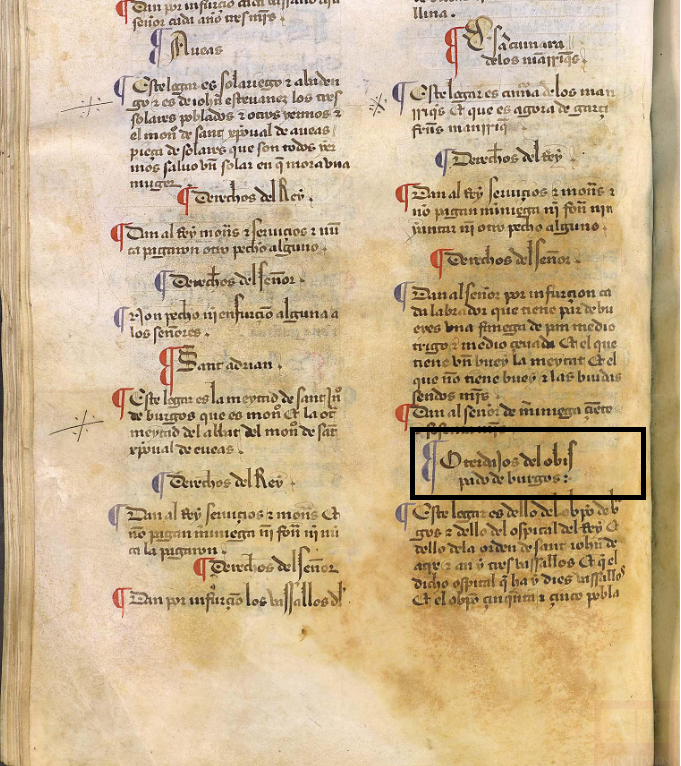 Dan por infurçio cada vassallo un
señor cada año tres mr̃s .
Aueas
Este logar es solariego ⁊ abaden
go ⁊ es de iohñ esteuanez los tres
solares poblados ⁊ otros yermos ⁊
el moñ de sant xp̃oual de aueas
pieça de solares que son todos yer
mos saluo vn̄ solar en q̃ mora vna
muger
Derechos del Rey .
Dan al Rey moñs ⁊ seruicios ⁊ nũ
ca pagaron otro pecho alguno .
Derechos del señor .
Non pecho ni enfurcio alguna a
los señores .
Sant adrian .
Este logar es la meytad de sant Jũ
de burgos que es moñ Et la otͣ
meytad del abbat del moñ de sãt
xp̃oual de eueas .
Derechos del Rey .
Dan al Rey seruiçios ⁊ moñs Et
no pagan martiniega nj̃ fon̄ ni nũ
ca la pagaron .
Derechos del señor
Dan por infurçio los vassallos dl
llina .
de los mãrriq̃s .
Este logar es de los man
rriq̃s Et que es agora de garçi
frñs manrriq̃
Derechos del Rey .
Dan al Rey seruiçios ⁊ moñs ⁊
no pagan mañiega nj̃ fon̄ nin
yantar nj̃ otro pecho alguno .
Derechos del señor .
Dan al señor por infurçion ca
da labrador que tiene par de bu
eyes vna fanega de pan medio
trigo ⁊ medio çeuada Et el que
tiene vn̄ buey la meytat Et el
que no tiene buey ⁊ las biudas
sendos mr̃s .
Dan al señor de mañiega çiento
⁊ sesenta mr̃s
Oterdajos del obis
pado de burgos :
Este logar es dello del ob̃po de bᵒ
gos ⁊ dello del ospital del Rey Et
dello dela orden de sant iohñ de
acre ⁊ an y tres vassallos Et q̃ el
dicho ospital q̃ ha y dies vassallos
Et el ob̃po çinq̃nta ⁊ çinco pobla